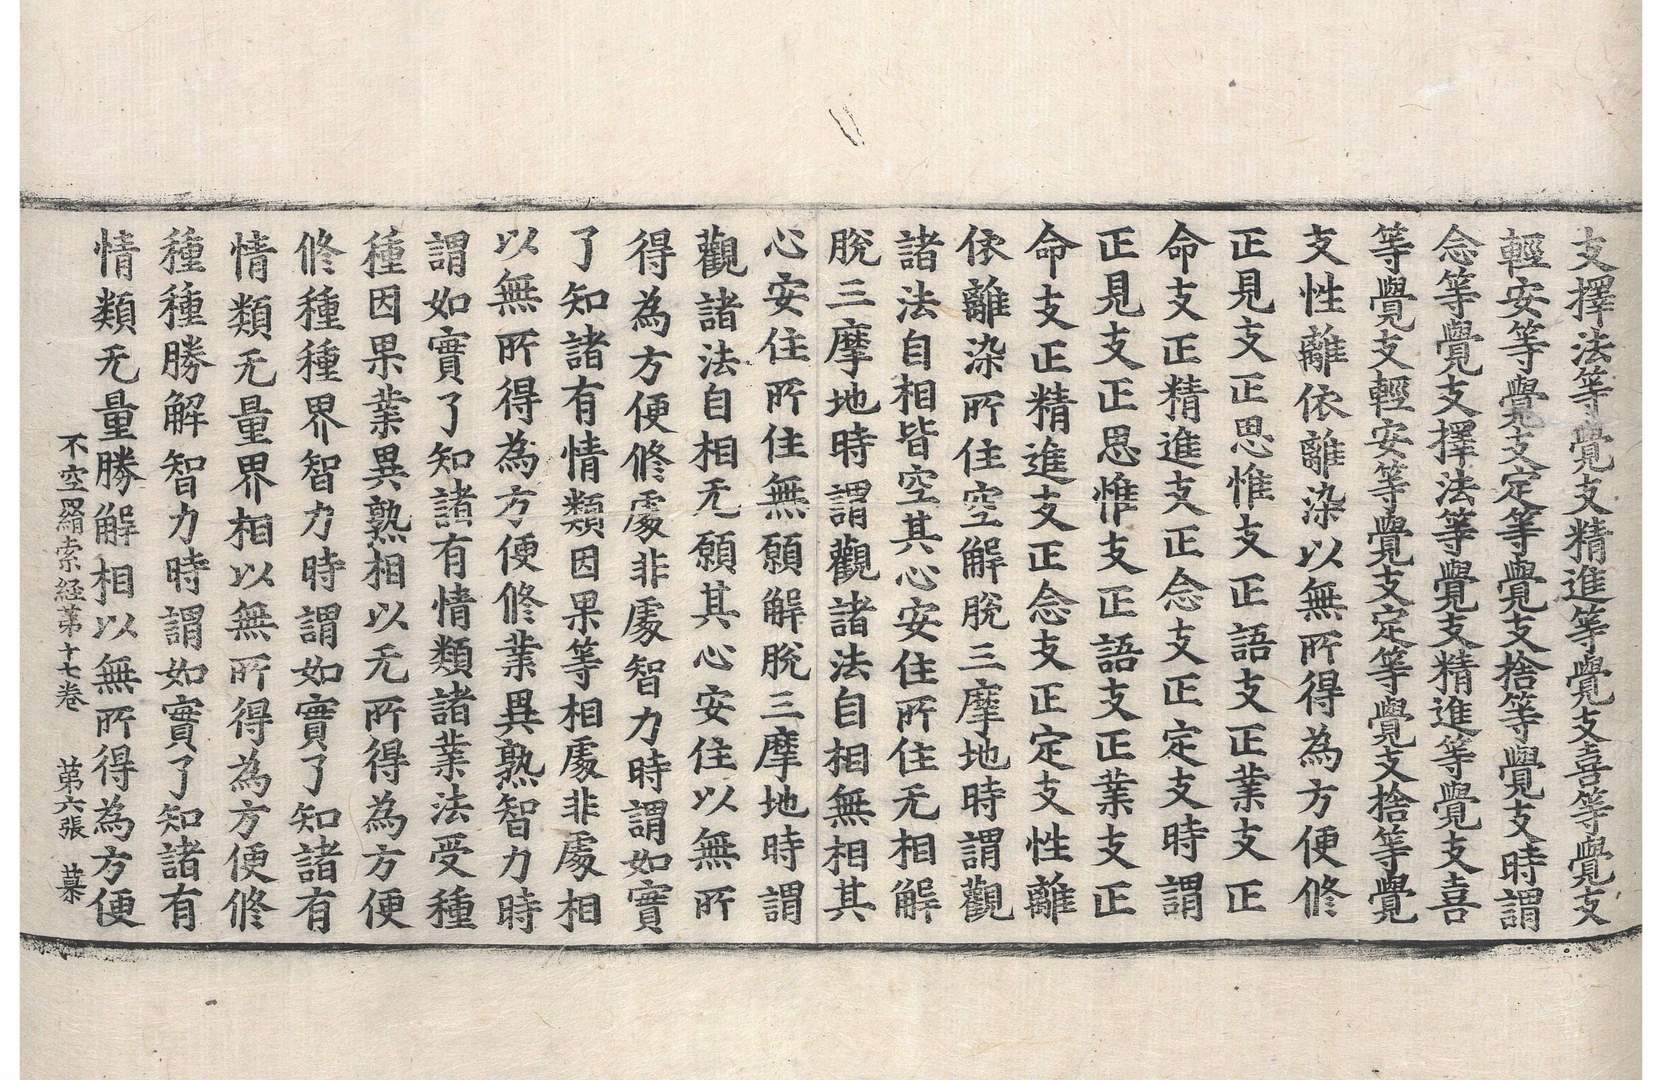 支擇法等覺支精進等覺支喜等覺支
輕安等覺支定等覺支捨等覺支時謂
念等覺支擇法等覺支精進等覺支喜
等覺支輕安等覺支定等覺支捨等覺
支性離依離染以無所得為方便修
正見支正思惟支正語支正業支正
命支正精進支正念支正定支時謂
正見支正思惟支正語支正業支正
命支正精進支正念支正定支性離
依離染所住空解脫三摩地時謂觀
諸法自相皆空其心安住所住无相解
脫三摩地時謂觀諸法自相無相其
心安住所住無願解脫三摩地時謂
觀諸法自相无願其心安住以無所
得為方便修處非處智力時謂如實
了知諸有情類因果等相處非處相
以無所得為方便修業異熟智力時
謂如實了知諸有情類諸業法受種
種因果業異熟相以无所得為方便
修種種界智力時謂如實了知諸有
情類无量界相以無所得為方便修
種種勝解智力時謂如實了知諸有
情類无量勝解相以無所得為方便
不空羂索経第十七卷 第六張 㒱